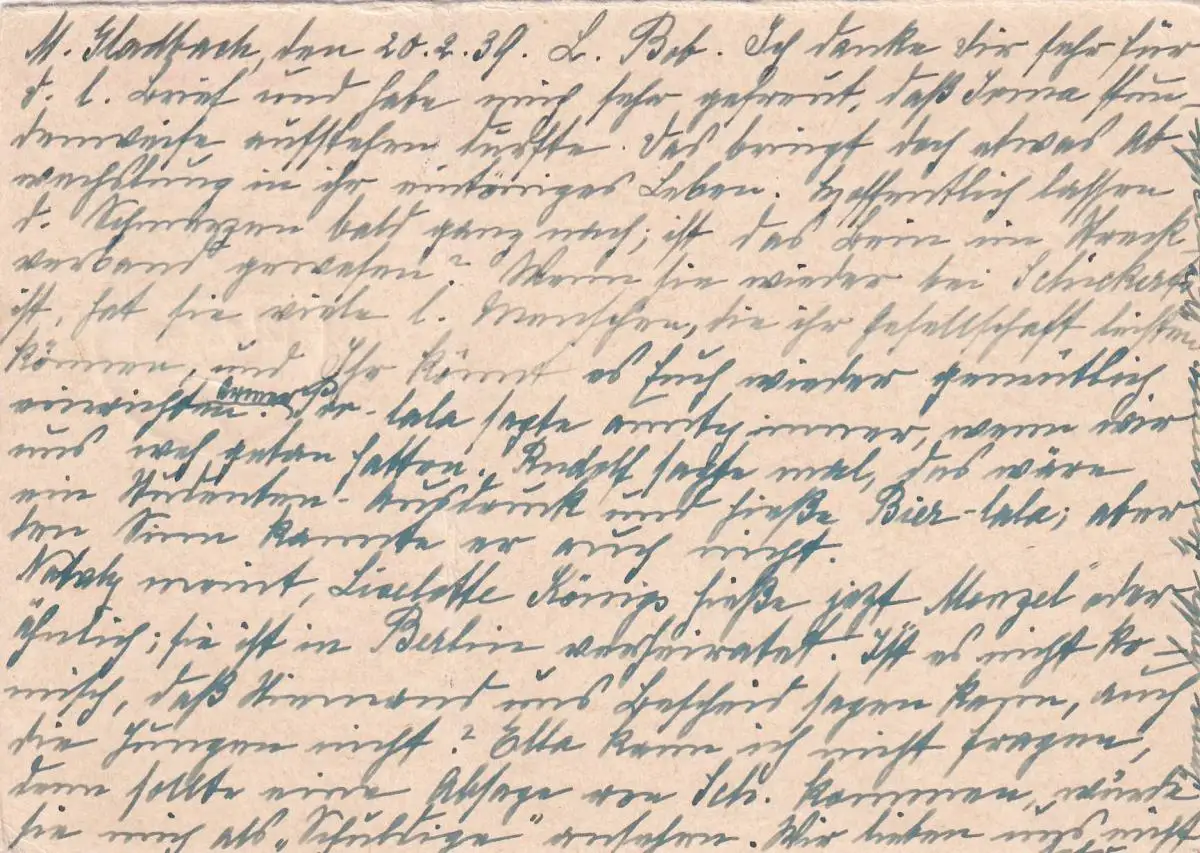 M. Gladbach, den 20.2.39. L. Bob. Ich danke Dir sehr für
d. l. Brief und habe mich sehr gefreut, daß Irma stun-
denweise aufstehen durfte. Das bringt doch etwas Ab
wechslung in ihr eintöniges Leben. Hoffentlich lassen
d. Schmerzen bald ganz nach; ist das Bein im Streck
verband gewesen? Wenn sie wieder bei Schickerts
ist, hat sie viele l. Menschen, die ihr Gesellschaft leisten
können, und Ihr könnt es Euch wieder gemütlich
einrichten. -lala sagte immer, wenn wir
uns weh getan hatten. Rudolf sagte mal, das wäre
ein Studenten-Ausdruck und hieße Bier-lala; aber
den Sinn kannte er auch nicht.
meint, Liselotte Königs hieße jetzt Menzel oder
ähnlich; sie ist in Berlin verheiratet. Ist es nicht ko-
misch, daß Niemand uns Bescheid sagen kann, auch
die Jungen nicht? Ella kann ich nicht fragen,
denn sollte eine Absage von Sch. kommen, würde
sie mich als „Schuldige" ansehen. Wir lieben uns nicht